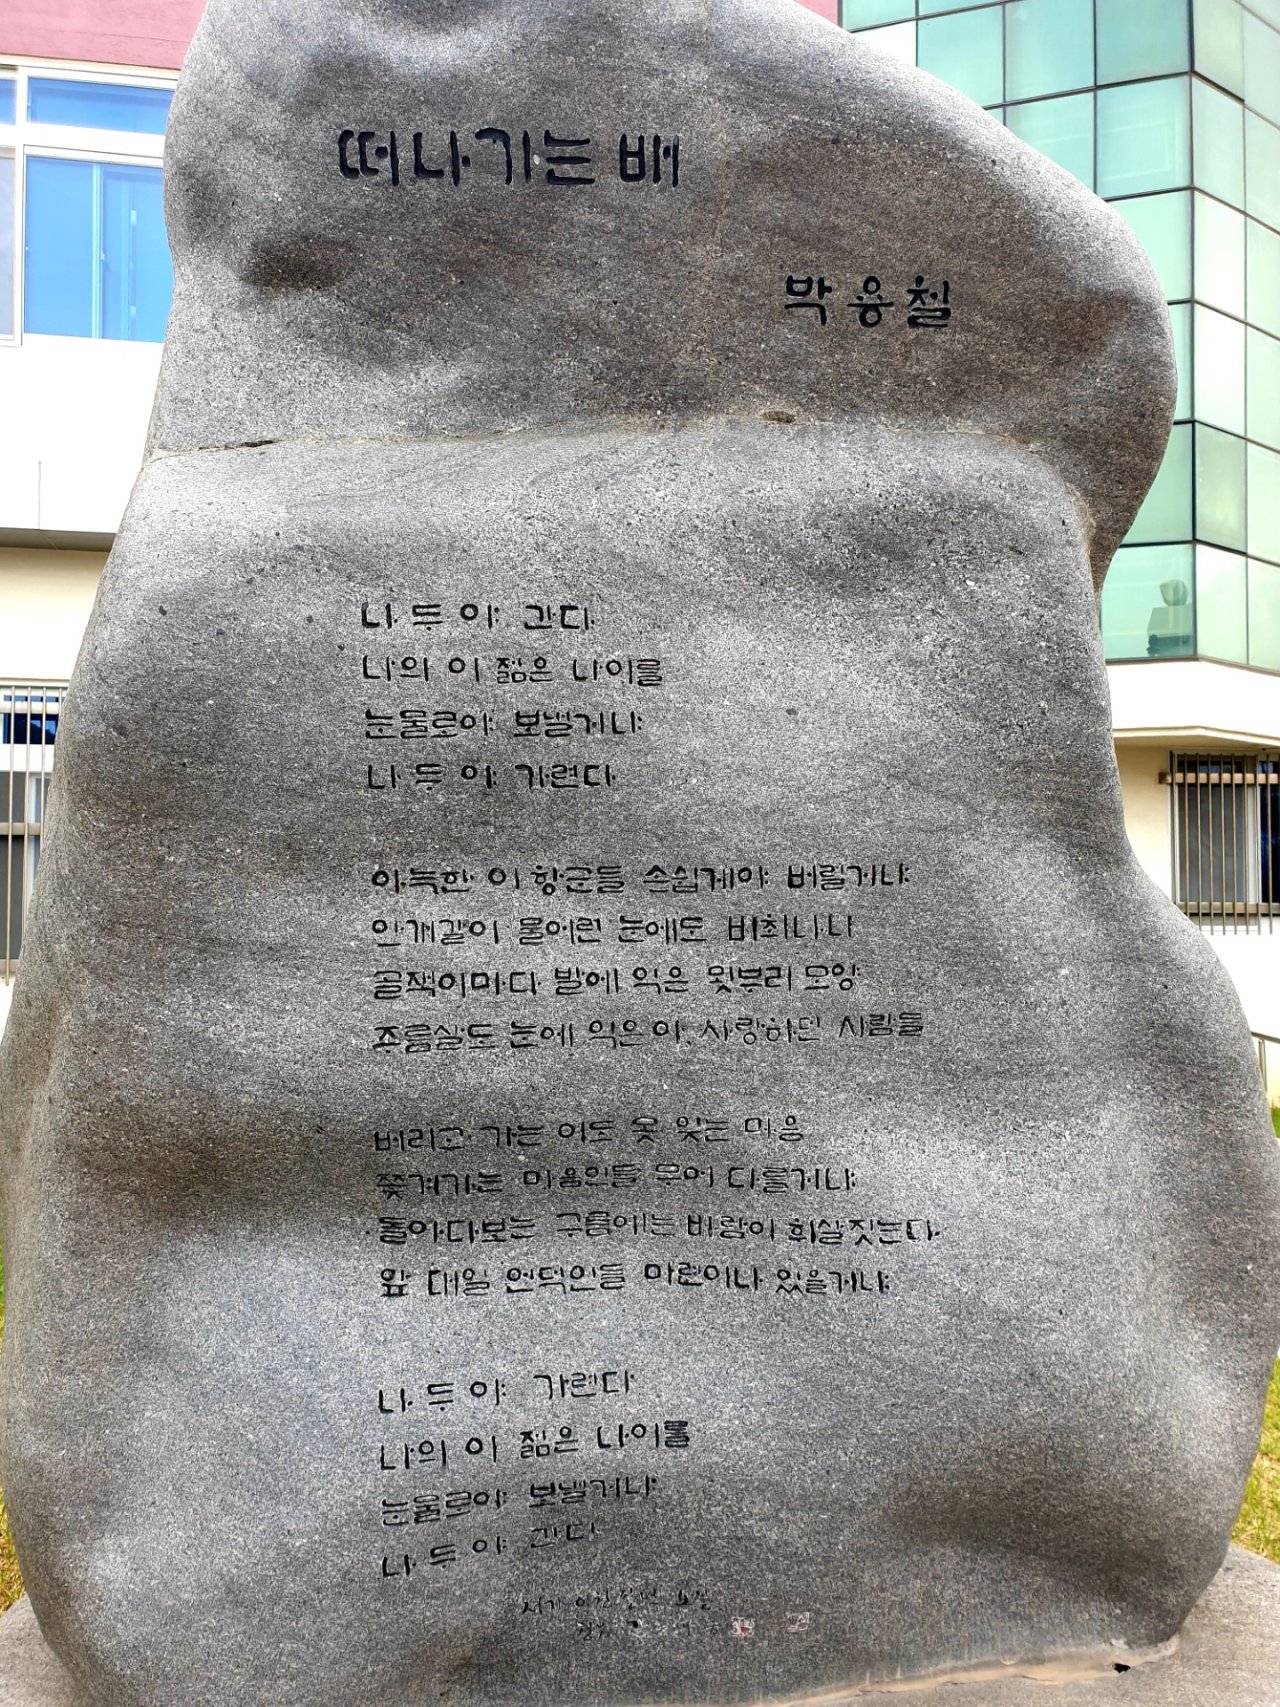 떠나가는 배
박용철
나 두 야 간다
나의 이 젊은 나이를
눈물로야 보낼거냐
나 두 야 가련다
아늑한 이 항군들 손쉽게야 버릴거냐
안개같이 물어린 눈에도 비최나니
골잭이마다 발에 익은 묏부리 모양
주름살도 눈에 익은 아, 사랑하던 사람들
버리고 가는 이도 못 잊는 마음
쫓겨가는 마음인들 무어 다를거냐
돌아다보는 구름에는 바람이 희살짓는다
앞 대일 언덕인들 마련이나 있을거냐
나 두 야 가련다
나의 이 젊은 나이를
눈물로야 보낼거냐
나 두 야 간다